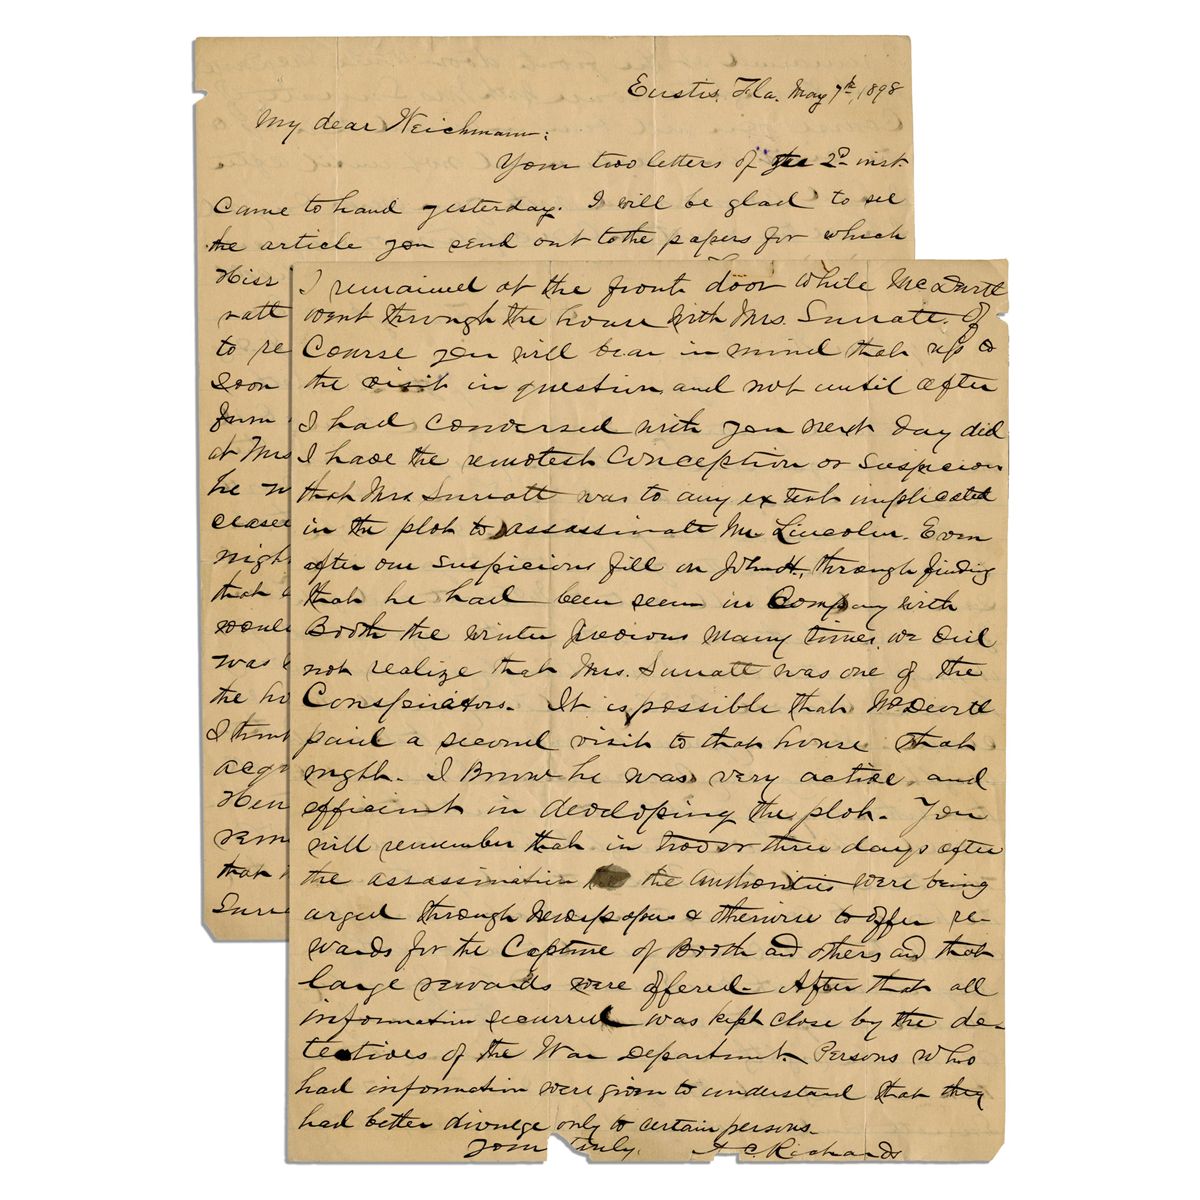 Eustis, Fla. May 7th, 1898
My dear Weichmann:
Your two letters of the 2d inst.
came to hand yesterday. I will be glad to see
the article you send out to the papers for which
Miss
rath
to re
soon
from
at Mrs
he w
closed
nigh
that
would
was
the ho
I think
acqu
Hen
rem
that
Surra
I remained at the front door while McDevitt
went through the house with Mrs. Surratt. Of
Course you will bear in mind that up to
the visit in question, and not until after
I had conversed with you next day did
I have the remotest Conception or Suspicion
that Mrs. Surratt was to any extent implicated
in the plot to assassinate Mr Lincoln. Even
after our suspicions fell on John H., through finding
that he had been seen in Company with
Booth the winter previous many times, we did
not realize that Mrs. Surratt was one of the
Conspirators. It is possible that McDevitt
paid a second visit to that house that
night. I know he was very active and
efficient in developing the plot. You
will remember that in two or three days after
the assassination the authorities were being
urged through Newspapers & otherwise to offer re-
wards for the Capture of Booth and others and that
large rewards were offered. After that all
information secured was kept close by the de-
tectives of the War Department. Persons who
had information were given to understand that they
had better divulge only to certain persons.
Yours truly, A C. Richards